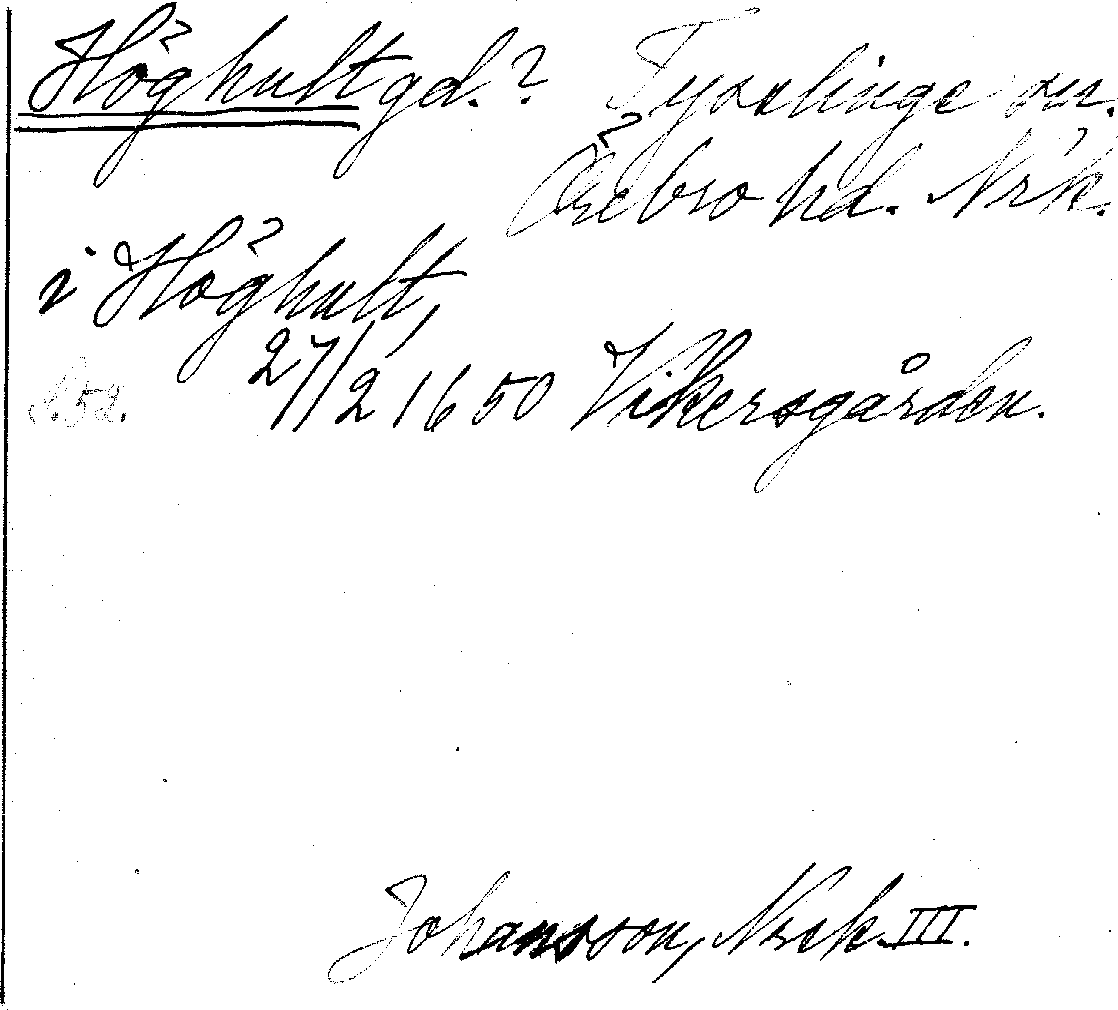 Höghult gd.? Tysslinge sn.
Örebro hd. Nrk.
i Höghult,
27/2 1650 Vikersgården.
Johansson, Nrck. III.